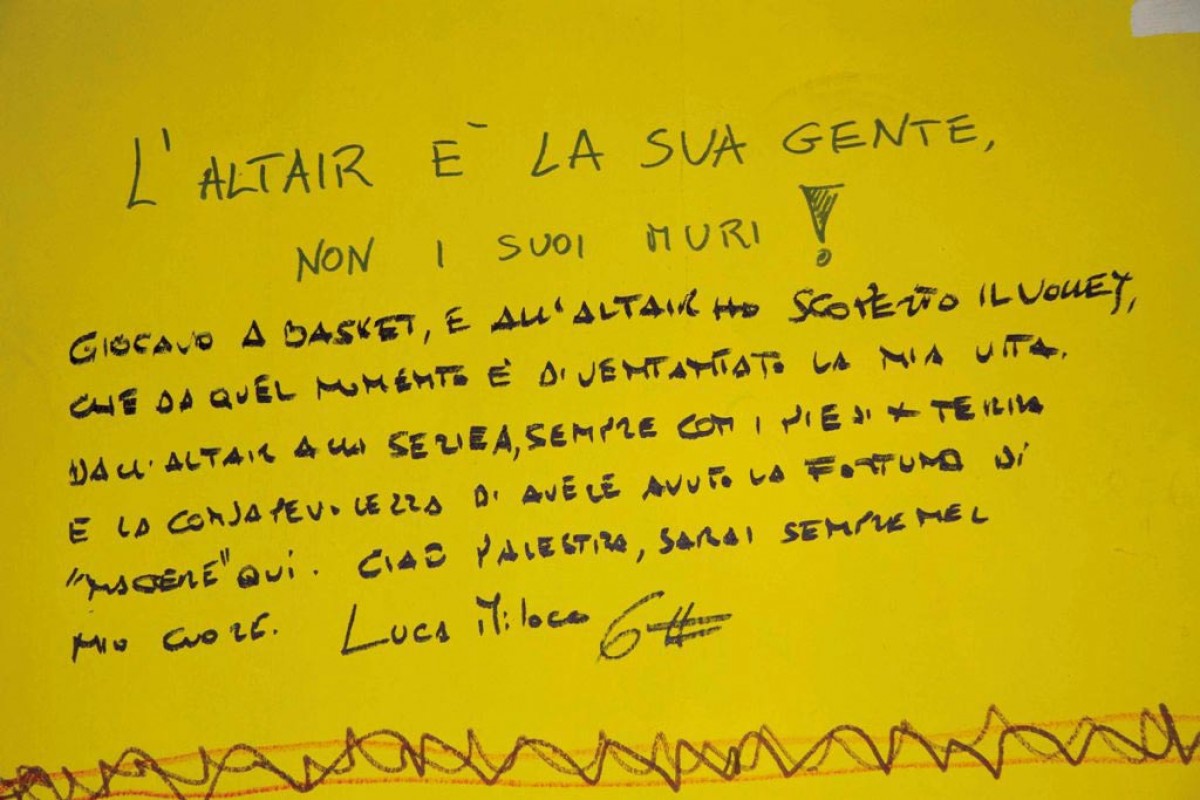 L'ALTAIR E` LA SUA GENTE,
NON I SUOI MURI!
GIOCAVO A BASKET, E ALL'ALTAIR HO SCOPERTO IL VOLLEY,
CHE DA QUEL MOMENTO E' DIVENTANTATO LA MIA VITA.
DALL'ALTAIR ALLA SERIE A, SEMPRE CON I PIEDI X TERRA
E LA CONSAPEVOLEZZA DI AVERE AVUTO LA FORTUNA DI
"NASCERE" QUI. CIAO PALESTRA, SARAI SEMPRE NEL
MIO CUORE. Luca Miloco 6#